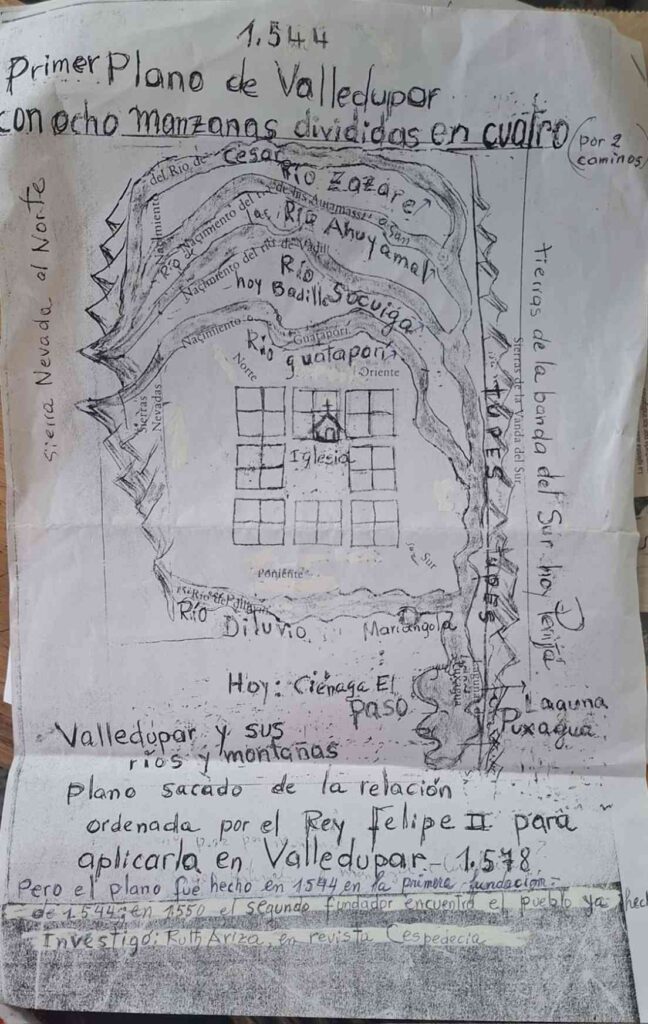 1.544
Primer Plano de Valledupar
con ocho manzanas divididas en cuatro (por 2
caminos)
Sierra Nevada al Norte
Nacimiento del Río de Cesare
Río Zazare
Nacimiento del
Río Ahuyamal
Nacimiento del río de Vadill
Río Socuiga
hoy Badillo
Nacimiento Guatapori
Río guataporí
Norte
Oriente
Sierras
Nevadas
Iglesia
Sur
Poniente
Río Diluvio
Mariangola
TUPES
TUPES
Sierras de la Vanda del Sur
tierras de la banda del Sur hoy Perijá
Hoy: Ciénaga El
Paso
Laguna
Puxagua
Valledupar y sus
ríos y montañas
plano sacado de la relación
ordenada por el Rey Felipe II para
aplicarla en Valledupar 1.578
Pero el plano fué hecho en 1544 en la primera fundación
de 1.544; en 1550 el segundo fundador encuentra el pueblo ya hech
Investigó: Ruth Ariza, en revista Cespedecia